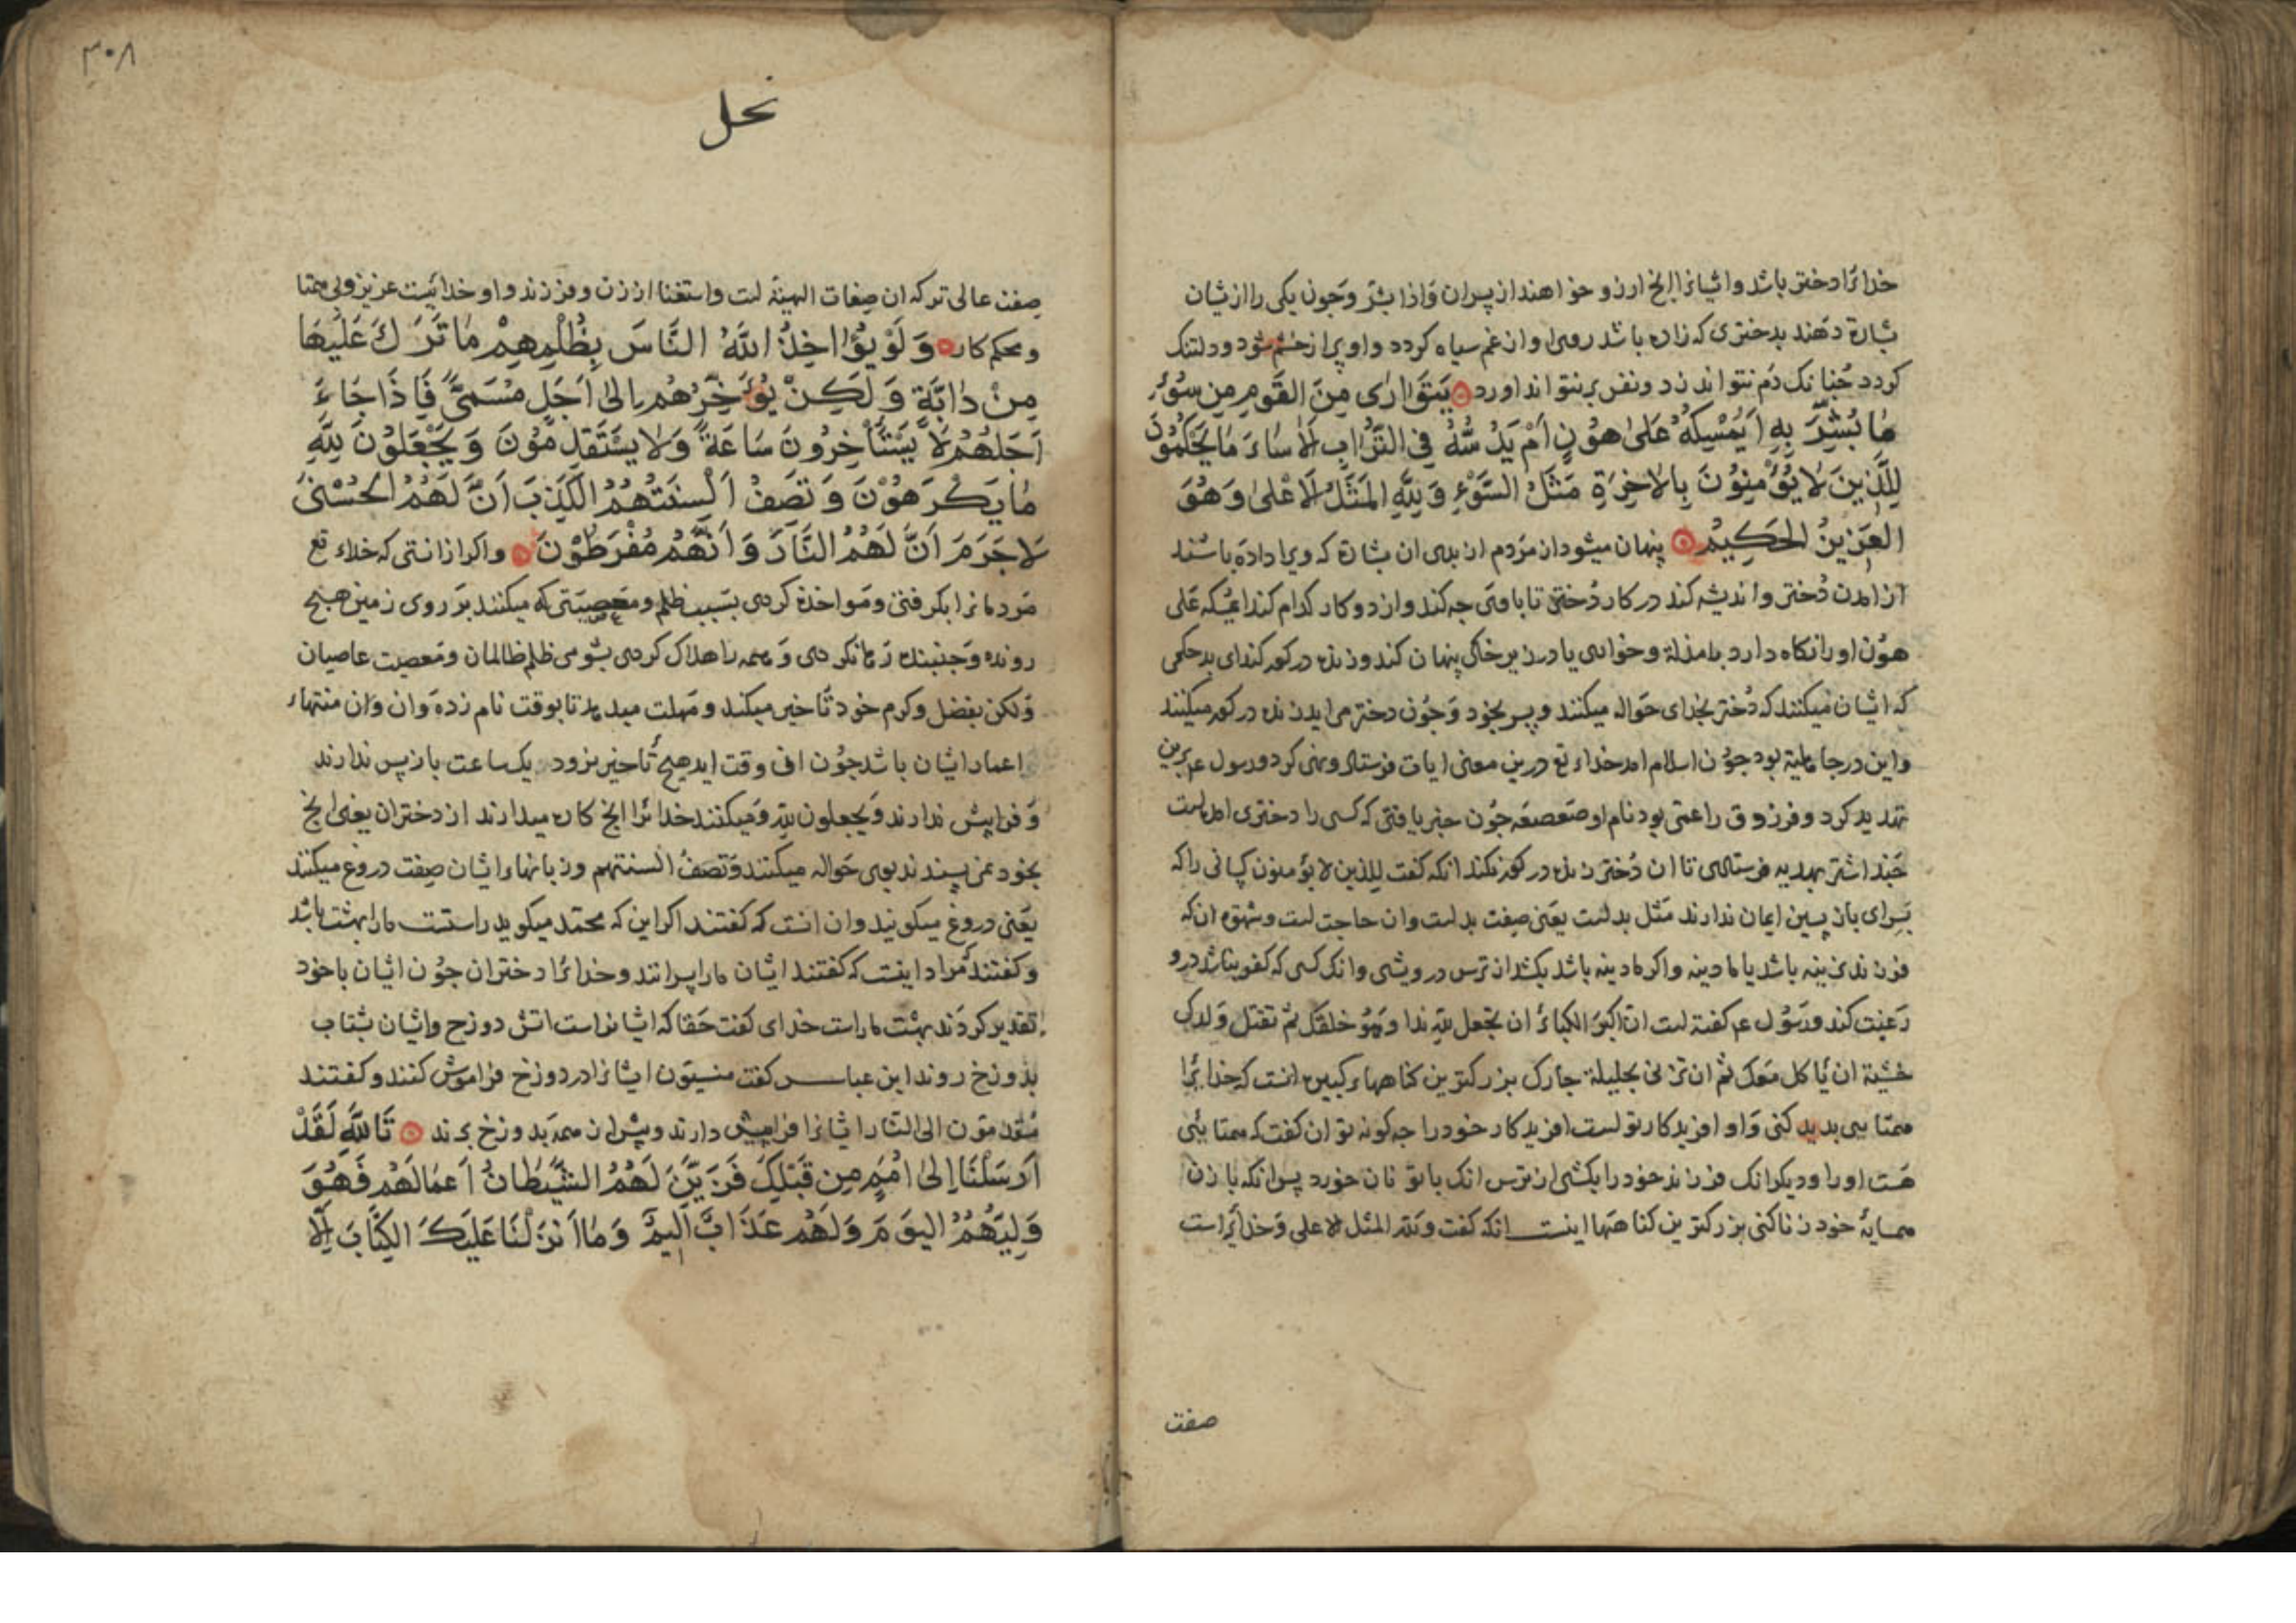 خدایرا دختر باشد و ایشانرا انچ ارزو خواهند از پسران وَاذا بشّر وچون یکی را از یشان
بشارة دهند بدختری که زاده باشد روی او از غم سیاه کردد و او پر از خشم شود و دلتنک
کردد چنانک دم نتواند زد و نفس بر نتواند اورد يَتَوَارٰى مِنَ القَومِ مِن سُوٓءِ
مَا بُشِّرَ بِهِ اَيُمْسِكُهُ عَلىٰ هُوْنٍ اَمْ يَدُسُّهُ فِي التُّرَابِ اَلَا سَاءَ مَا يَحْكُمُوْنَ
لِلَّذِينَ لَا يُؤْمِنُوْنَ بِالْاٰخِرَةِ مَثَلُ السَّوْءِ وَلِلّٰهِ المَثَلُ الْاَعْلىٰ وَهُوَ
العَزِيزُ الْحَكِيمُ پنهان میشود از مردم از بدی ان بشارة که ویرا داده باشند
از امدن دختر و اندیشه کند در کار دختر تا با وی چه کند و از دو کار کدام کند ایمسکه علی
هون او را نکاه دارد بامذلة و خواری یا در زیر خاک پنهان کند و زنده در کور کند ای بد حکمی
که ایشان میکنند که دختر بخدای حواله میکنند و پسر بخود و چون دختر می ایدزنده در کور میکنند
و این در جاهلیة بود چون اسلام امد خداء تع درین معنی ایات فرستاد و نهی کرد و رسول عم برین
تهدید کرد و فرزوق را عمّی بود نام او صعصعه چون خبر یافتی که کسی را دختری امده است
چند اشتر بهدیه فرستادی تا ان دختر زنده در کور نکند انکه کفت للذین لا یؤمنون کسانی را که
بسرای باز پسین ایمان ندارند مثل بدست یعنی صفت بدست و ان حاجت است و شهوة ان که
فرزند نرینه باشد یا مادینه و اکر مادینه باشد بکشد از ترس درویشی و انک کسی که کفو نباشد درو
رغبت کند و رسول عم کفته است انّ اکبر الکبائر ان تجعل للّه ندا وهو خلقک ثم تقتل ولدک
خشیة ان یاکل معک ثم ان تزنی بحلیلة جارک بزرکترین کناههاء کبیره انست که خدایرا
همتایی بدید کنی و او افریدکار تو است افریدکار خود را چه کونه توان کفت که همتایی
هست او را و دیکر انک فرزند خود را بکشی از ترس انک با تو نان خورد پس انکه با زن
همسایهٔ خود زنا کنی بزرکترین کناهها اینست انکه کفت وللّه المثل الاعلی وخدایراست
صفت
۳۰۸
نحل
صفت عالی تر که ان صفات الهیة است و استغنا از زن و فرزند و او خدائیست عزیز و بی همتا
و محکم کار وَلَوْ يُؤَاخِذُ اللّٰهُ النَّاسَ بِظُلْمِهِمْ مَا تَرَكَ عَلَيْهَا
مِنْ دَابَّةٍ وَلٰكِنْ يُؤَخِّرُهُمْ اِلىٰ اَجَلٍ مُسَمًّى فَاِذَا جَاءَ
اَجَلُهُمْ لَا يَسْتَأْخِرُونَ سَاعَةً وَلَا يَسْتَقْدِمُوْنَ وَيَجْعَلُوْنَ لِلّٰهِ
مَا يَكْرَهُوْنَ وَتَصِفُ اَلْسِنَتُهُمُ الْكَذِبَ اَنَّ لَهُمُ الْحُسْنىٰ
لَا جَرَمَ اَنَّ لَهُمُ النَّارَ وَاَنَّهُمْ مُفْرَطُوْنَ واکر ازانستی که خداء تع
مردمانرا بکرفتی و مواخذه کردی بسبب ظلم و معصیتی که میکنند بر روی زمین هیچ
رونده و جنبنده رها نکردی و همه را هلاک کردی بشومی ظلم ظالمان و معصیت عاصیان
ولکن بفضل و کرم خود تاخیر میکند و مهلت میدهد تا بوقت نام زده و ان وان منتهاء
اعمار ایشان باشد چون ان وقت اید هیچ تاخیر نرود یک ساعت باز پس ندارند
و فرا پیش ندارند ویجعلون للّه ومیکنند خدایرا انچ کاره میدارند از دختران یعنی انچ
بخود نمی پسندند بوی حواله میکنند وتصف السنتهم و زبانهاء ایشان صفت دروغ میکنند
یعنی دروغ میکویند و ان انست که کفتند اکر این که محمد میکوید راستست مارا بهشت باشد
و کفتند مراد اینست که کفتند ایشان مارا پسرانند و خدایرا دختران چون ایشان با خود
تقدیر کردند بهشت ماراست خدای کفت حقا که ایشانراست اتش دوزخ و ایشان بشتاب
بدوزخ روند ابن عباس کفت منسیّون ایشانرا در دوزخ فراموش کنند و کفتند
مقدمون الی النار ایشانرا فرا پیش دارند و پیش از همه بدوزخ برند تَاللّٰهِ لَقَدْ
اَرْسَلْنَا اِلىٰ اُمَمٍ مِن قَبْلِكَ فَزَيَّنَ لَهُمُ الشَّيْطَانُ اَعْمَالَهُمْ فَهُوَ
وَلِيُّهُمُ اليَوْمَ وَلَهُمْ عَذَابٌ اَلِيمٌ وَمَا اَنْزَلْنَا عَلَيْكَ الكِتَابَ اِلَّا